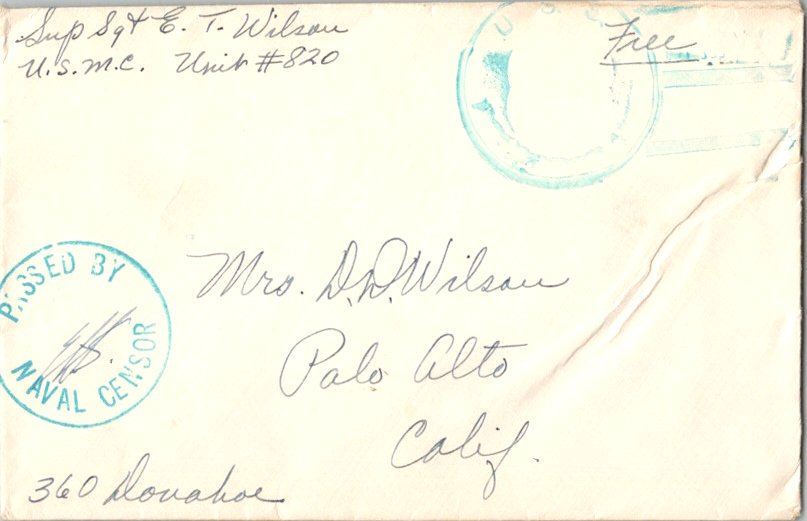 Sup Sgt E. T. Wilson
U.S.M.C. Unit #820
U.S.
Free
PASSED BY
NAVAL CENSOR
Mrs. D.D. Wilson
Palo Alto
Calif.
360 Donahoe